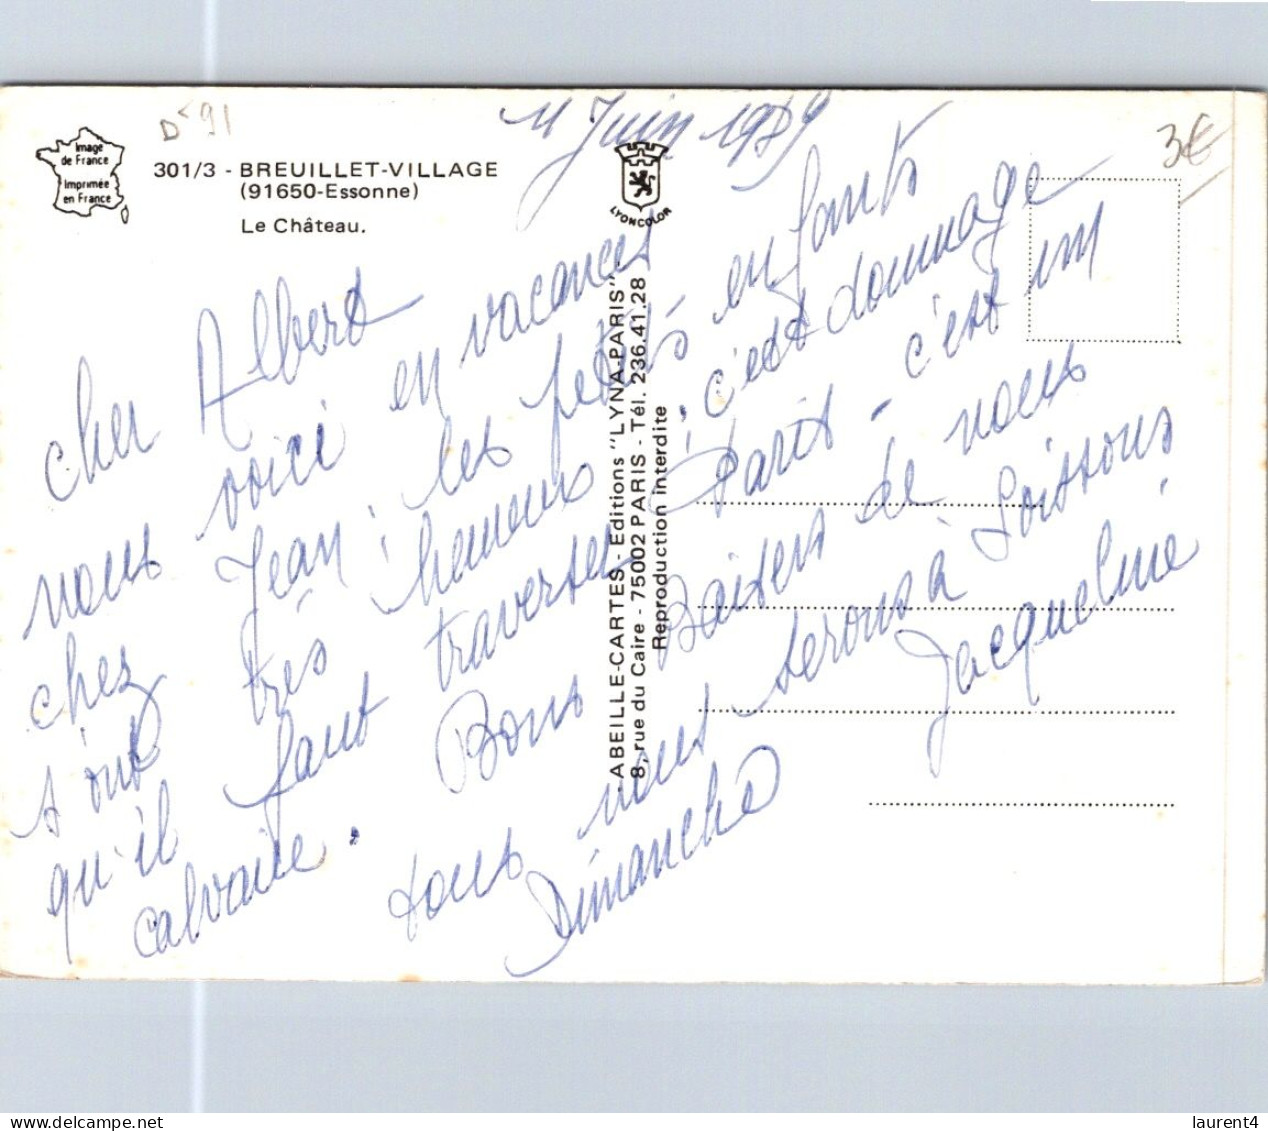 D 91
11 Juin 1989
3€
Image
de France
Imprimée
en France
301/3 - BREUILLET-VILLAGE
(91650-Essonne)
Le Château.
LYONCOLOR
ABEILLE-CARTES - Editions "LYNA-PARIS"
8, rue du Caire - 75002 PARIS - Tél. 236.41.28
Reproduction interdite
Cher Albert
nous voici en vacances
chez Jean, les petits enfants
s'ont très heureux, c'est dommage
qu'il faut traverser Paris - c'est un
calvaire.
Bons Baisers de nous
tous nous serons à Soissons
Dimanche
Jacqueline
laurent4